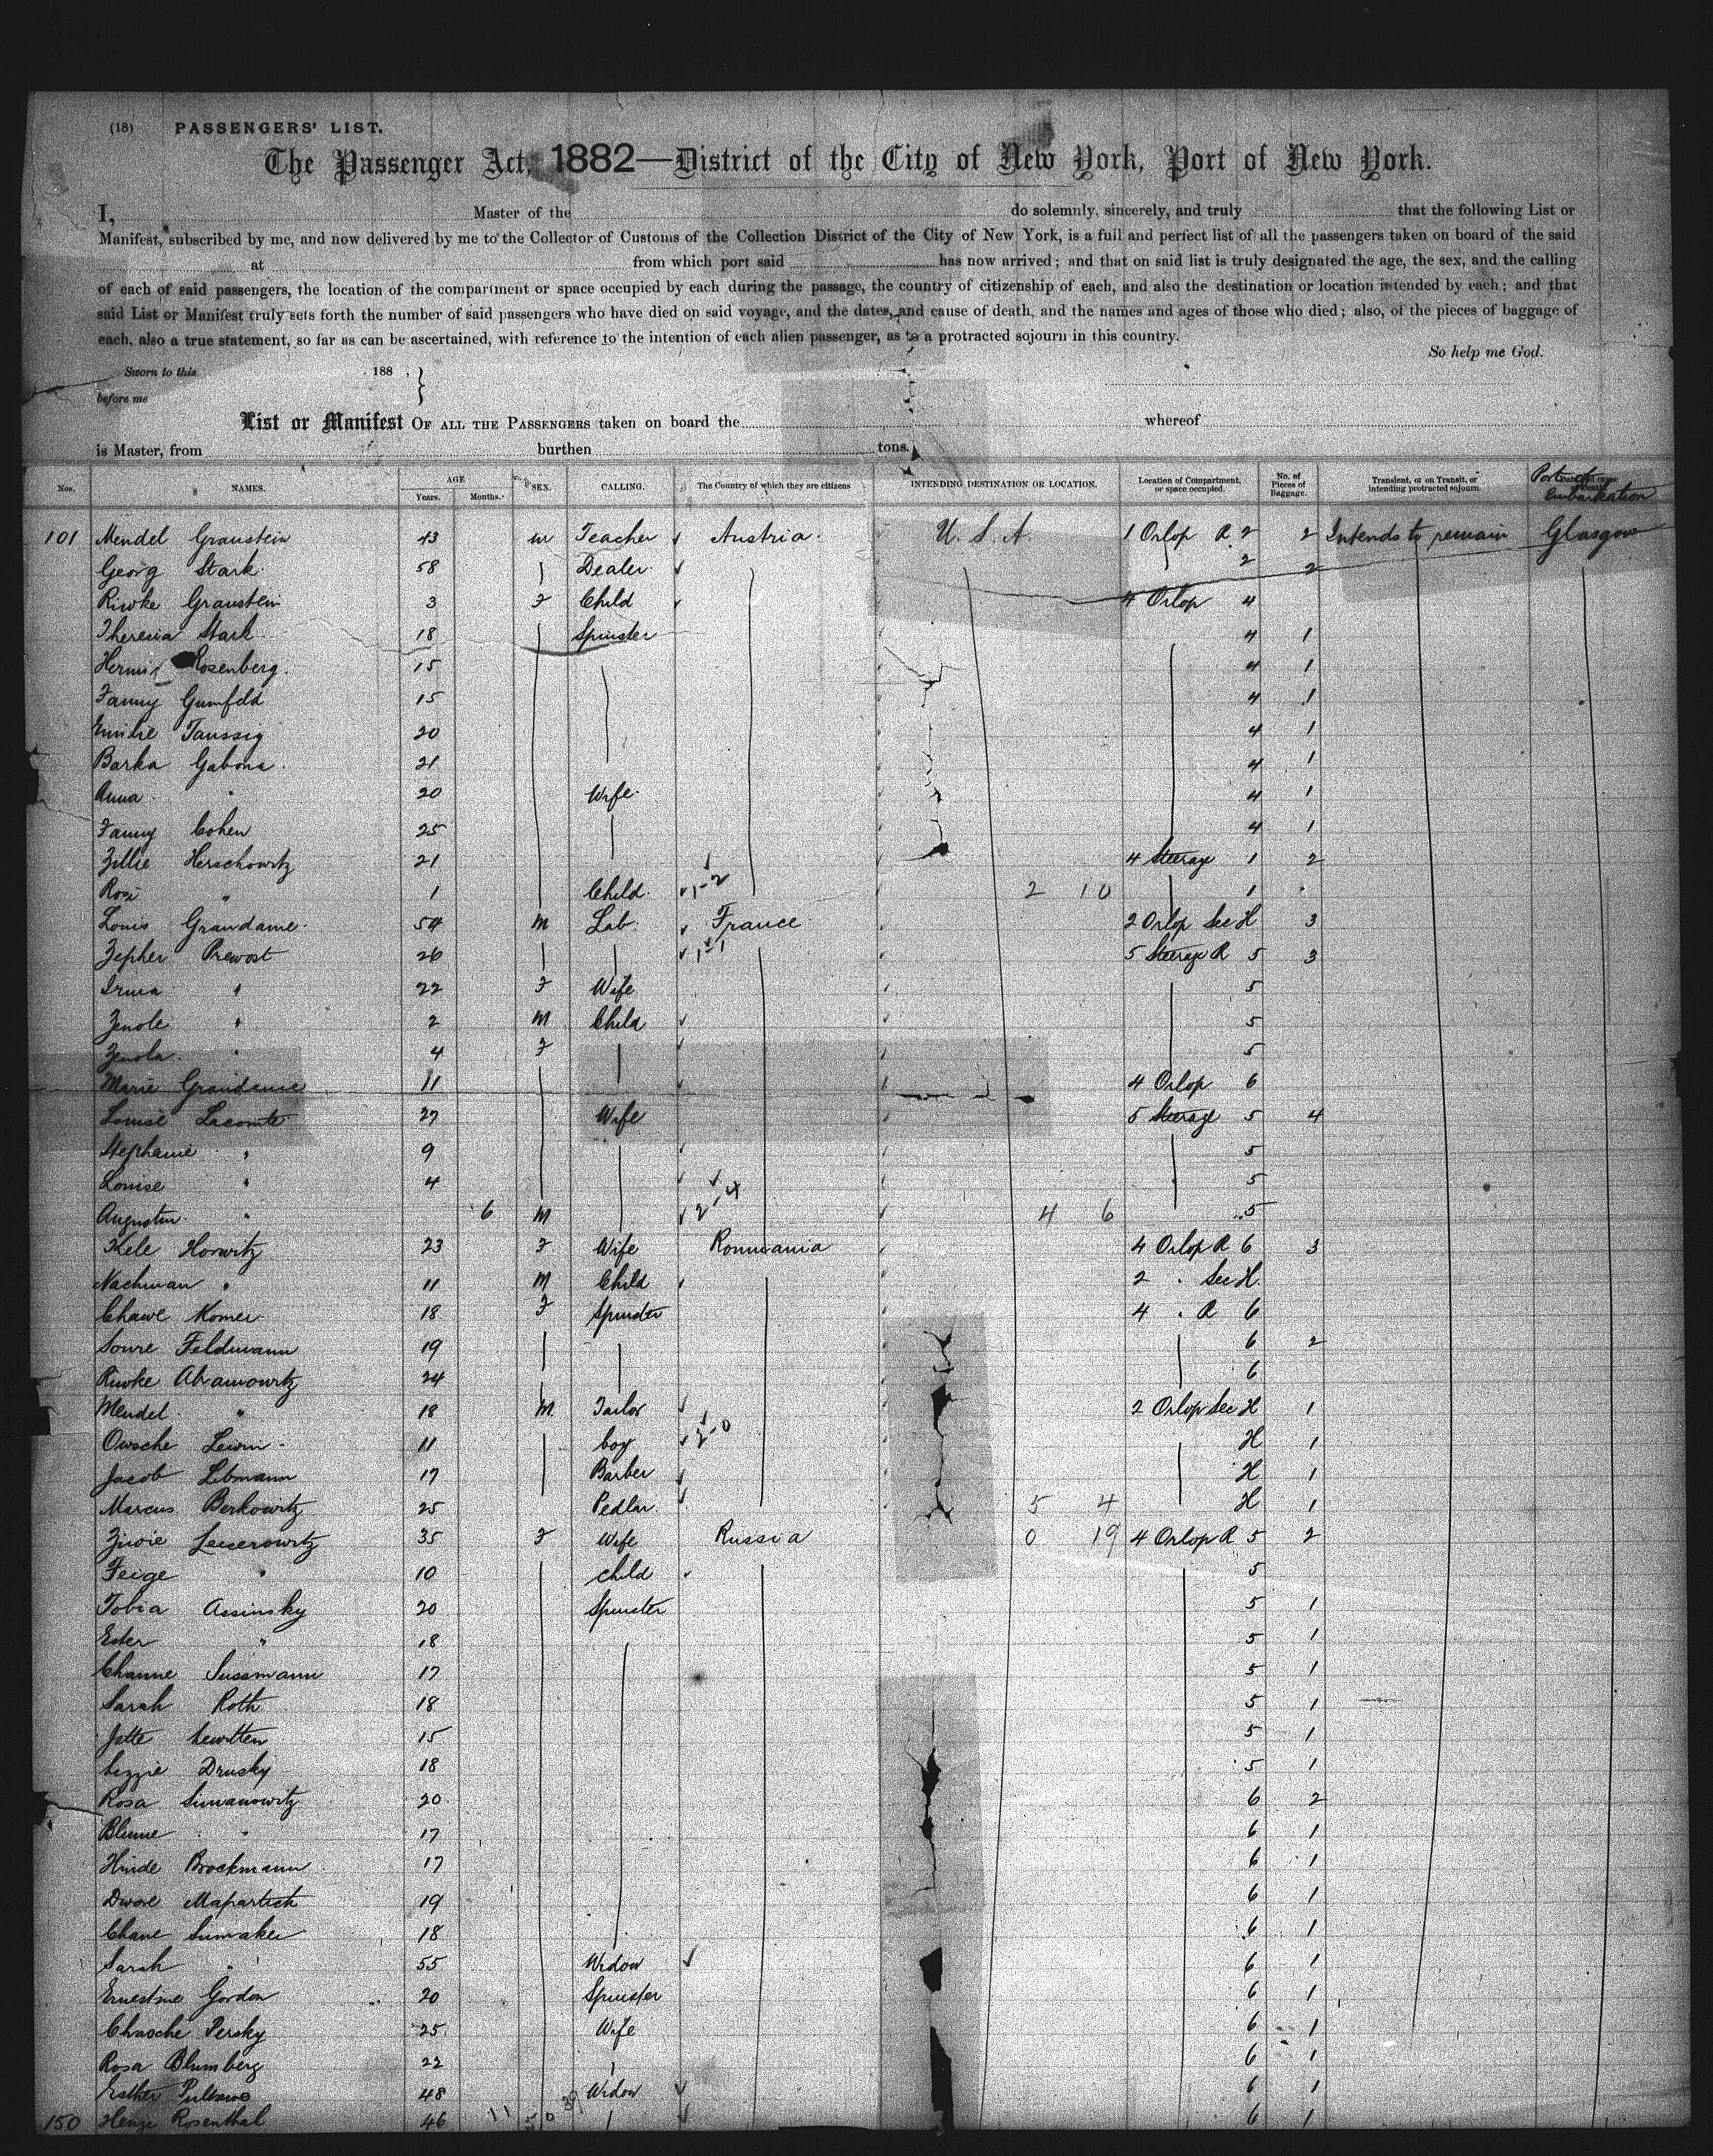 (18) PASSENGERS' LIST.
The Passenger Act, 1882—District of the City of New York, Port of New York.
I, Master of the do solemnly, sincerely, and truly that the following List or
Manifest, subscribed by me, and now delivered by me to the Collector of Customs of the Collection District of the City of New York, is a full and perfect list of all the passengers taken on board of the said
at from which port said has now arrived; and that on said list is truly designated the age, the sex, and the calling
of each of said passengers, the location of the compartment or space occupied by each during the passage, the country of citizenship of each, and also the destination or location intended by each; and that
said List or Manifest truly sets forth the number of said passengers who have died on said voyage, and the dates, and cause of death, and the names and ages of those who died; also, of the pieces of baggage of
each, also a true statement, so far as can be ascertained, with reference to the intention of each alien passenger, as to a protracted sojourn in this country.
So help me God.
Sworn to this 188 ,
before me
List or Manifest OF ALL THE PASSENGERS taken on board the whereof
is Master, from burthen tons.
Nos. NAMES. AGE Years. Months. SEX. CALLING. The Country of which they are citizens INTENDING DESTINATION OR LOCATION. Location of Compartment, or space occupied. No. of Pieces of Baggage. Transient, or on Transit, or intending protracted sojourn Port of Embarkation
101 Mendel Graustein 43 m Teacher Austria U.S.A. 1 Orlop R 2 2 Intends to remain Glasgow
Georg Stark 58 Dealer 2 2
Riwke Graustein 3 F Child 4 Orlop 4
Theresia Stark 18 Spinster 4 1
Rosenberg 15 4 1
Fanny Gumfeld 15 4 1
Emilie Taussig 20 4 1
Barka Gabona 21 4 1
Anna " 20 Wife 4 1
Fanny Cohen 25 4 1
Zillie Herschowitz 21 4 Steerage 1 2
Rosi " 1 Child 1-2 2 10 1
Louis Grandame 54 M Lab. France 2 Orlop Sec H 3
Zepher Prewost 26 1-1 5 Steerage R 5 3
Irma " 22 F Wife 5
Zenole " 2 M Child 5
Zenola " 4 F 5
Marie Grandame 11 4 Orlop 6
Louise Lacomte 27 Wife 5 Steerage 5 4
Stephanie " 9 5
Louise " 4 5
Augustin " 6 M 2-4 4 6 5
Horwitz 23 F Wife Roumania 4 Orlop R 6 3
Nachman " 11 M Child 2 " Sec H.
Chawe Komer 18 F Spinster 4 " R 6
Soure Feldmann 19 6 2
Riwke Abramowitz 24 6
Mendel " 18 M Tailor 2 Orlop Sec H 1
Owsche Lewin 11 boy 2-0 H 1
Jacob Libmann 17 Barber H 1
Marcus Berkowitz 25 Pedlar 5 4 H 1
Ziwie Leiserowitz 35 F Wife Russia 0 19 4 Orlop R 5 2
Feige " 10 child 5
Tobia Assinsky 20 Spinster 5 1
Ester " 18 5 1
Channe Sussmann 17 5 1
Sarah Roth 18 5 1
Jette Lewitten 15 5 1
Lizzie Drusky 18 5 1
Rosa Simanowitz 20 6 2
Blume " 17 6 1
Hinde Brockmann 17 6 1
Dwore Mapartick 19 6 1
Chane Sumaker 18 6 1
Sarah " 55 Widow 6 1
Ernestine Gordon 20 Spinster 6 1
Chasche Persky 25 Wife 6 1
Rosa Blumberg 22 6 1
Esther 48 Widow 6 1
150 Rosenthal 46 11 6 1